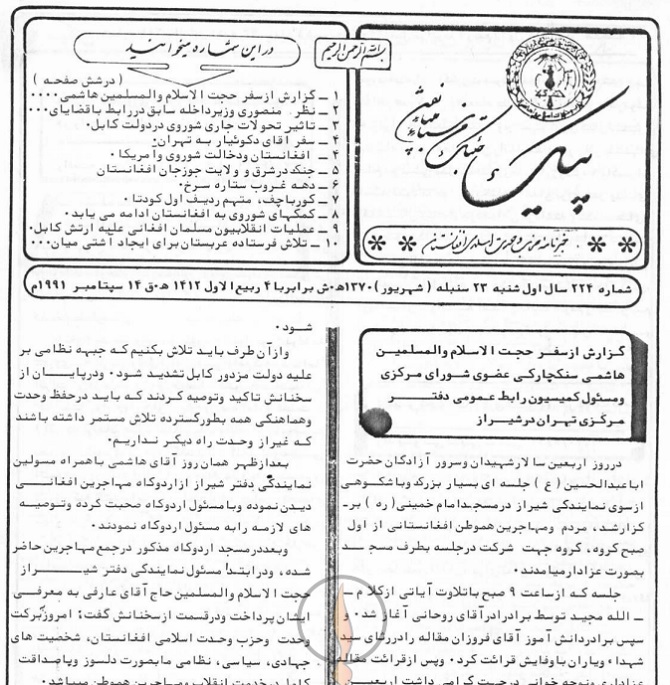 بسم الله الرحمن الرحیم
پیام
خبرنامه حزب وحدت اسلامی افغانستان
در این شماره میخوانید
( درشش صفحه )
۱ ــ گزارش ازسفر حجت الاسلام والمسلمین هاشمی ۰۰۰۰
۲ ــ نظر منصوری وزیرداخله سابق دررابط باقضایای ۰۰۰
۳ ــ تاثیر تحولات جاری شوروی دردولت کابل۰
۴ ــ سفر اقای دکوئیار به تهران۰
۴ ــ افغانستان ودخالت شوروی وآمریکا ۰
۵ ــ جنگ درشرق و ولایت جوزجان افغانستان
۶ ــ دهه غروب ستاره سرخ۰
۷ ــ کورباچف، متهم ردیف اول کودتا ۰
۸ ــ کمکهای شوروی به افغانستان ادامه می یابد۰
۹ ــ عملیات انقلابیون مسلمان افغانی علیه ارتش کابل۰
۱۰ ــ تلاش فرستاده عربستان برای ایجاد آشتی میان۰۰۰
شماره ۲۲۴ سال اول شنبه ۲۳ سنبله ( شهریور ) ۱۳۷۰ه‍۰ش برابربا ۴ ربیع الاول ۱۴۱۲ ه‍۰ق ۱۴ سپتامبر ۱۹۹۱م
گزارش ازسفر حجت الاسلام والمسلمین
هاشمی سنکچارکی عضوی شورای مرکزی
ومسئول کمیسیون رابط عمومی دفتر
مرکزی تهران درشیراز
درروز اربعین سالارشهیدان وسرور آزادگان حضرت
اباعبدالحسین ( ع ) جلسه ای بسیار بزرکدوباشکوهی
ازسوی نمایندکی شیراز درمسجدامام خمینی( ره ) بر۔
کزارشد، مردم ومهاجرین هموطن افغانستانی از اول
صبح کروه، کروه جهت شرکت درجلسه بطرف مسجد
بصورت عزادارمیامدند۰
جلسه که ازساعت ۹ صبح باتلاوت آیاتی ازکلام ــ
ــ الله مجید توسط برادرادرآقای روحانی آغاز شد۰ و
سپس برادردانش آموز آقای فروزان مقاله رادررثای سید
شهداء ویاران باوفایش قرائت کرد۰ وپس ازقرائت مقاله
عزاداری ونوحه خوانی درجهت گرامی داشت اربعین
شود۰
وازآن طرف باید تلاش بکنیم که جبهه نظامی بر
علیه دولت مزدور کابل تشدید شود۰ ودرپایان از
سخنانش تاکید وتوصیه کردند که باید درحفظ وحدت
وهماهنکی همه بطورکسترده تلاش مستمر داشته باشند
که غیراز وحدت راه دیکر نداریم۰
بعدازظهر همان روز آقای هاشمی باهمراه مسولین
نمایندگی دفتر شیراز ازاردوکاه مهاجرین افغانی
دیدن نموده وبامسئول اردوکاه صحبت کرده وتوصیه
های لازمه رابه مسئول اردوکاه نمودند۰
وبعددرمسجد اردوکاه مذکور درجمع مهاجرین حاضر
شده، ودرابتدا مسئول نمایندکی دفتر شیراز
حجت الاسلام والمسلمین حاج آقای عارفی به معرفی
ایشان پرداخت ودرقسمت ازسخنانش گفت: امروزبرکت
وحدت وحزب وحدت اسلامی افغانستان، شخصیت های
جهادی، سیاسی، نظامی مابصورت دلسوز وباصداقت
کامل درخدمت انقلاب ومهاجرین هموطن میباشد۰